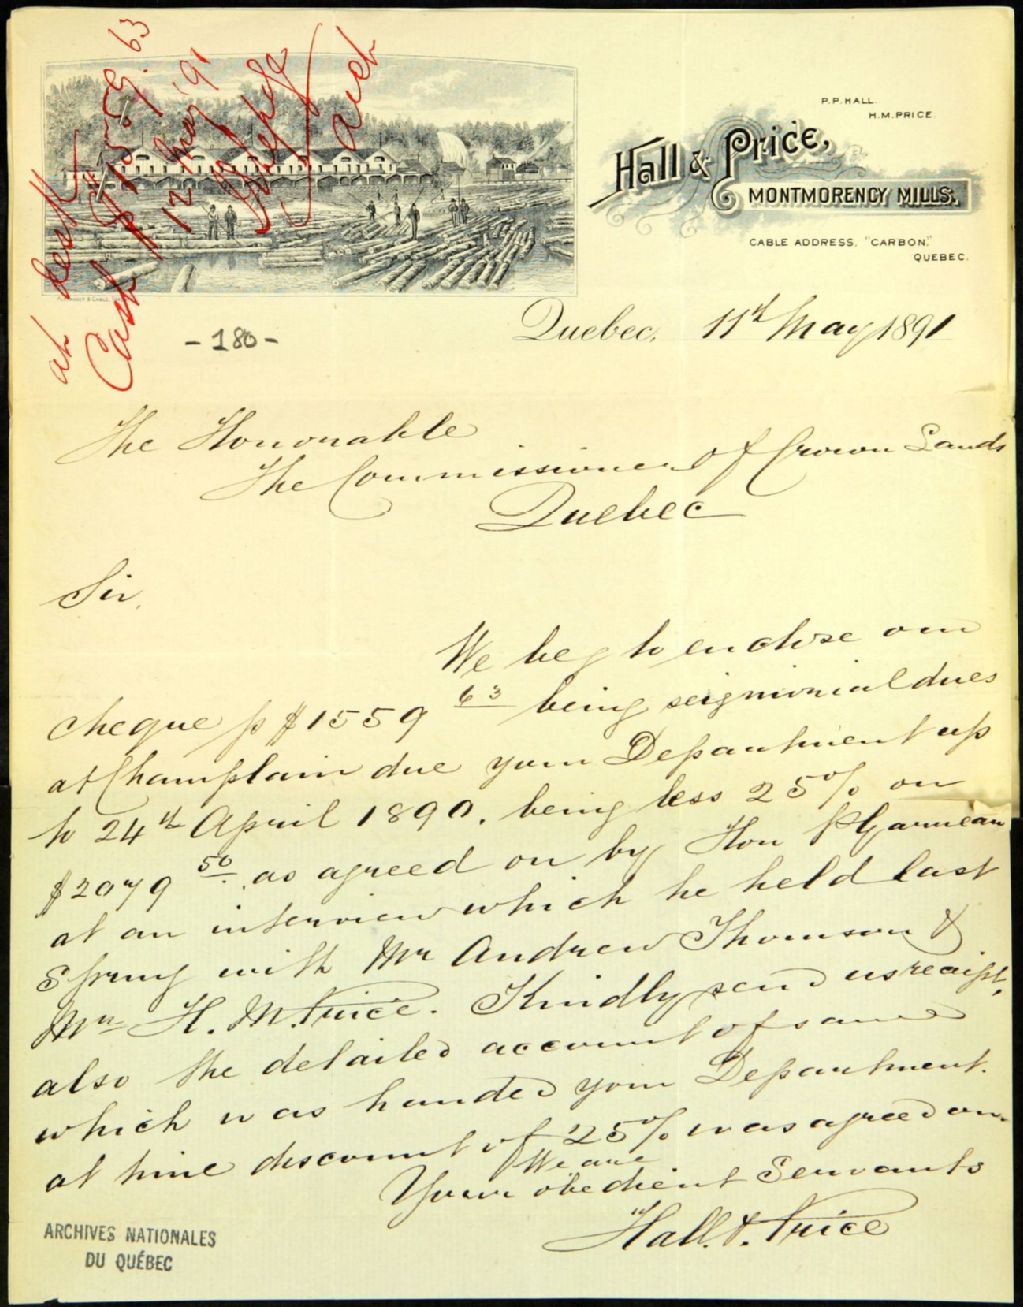 P.P. HALL.
H.M. PRICE.
Hall & Price,
MONTMORENCY MILLS.
CABLE ADDRESS, "CARBON,"
QUEBEC.
Cash $1559.63
12 May '91
- 180 -
Quebec, 11th May 1891
The Honorable
The Commissioner of Crown Lands
Quebec
Sir,
We beg to enclose our
cheque p $1559 63 being seigniorial dues
at Champlain due your Department up
to 24th April 1890. being less 25% on
$2079 50 as agreed on by Hon P Garneau
at an interview which he held last
Spring with Mr Andrew Thomson &
Mr H. M. Price. Kindly send us receipt,
also the detailed account of same
which was handed your Department.
at time discount of 25% was agreed on.
We are
Your obedient Servants
Hall. & Price
ARCHIVES NATIONALES
DU QUÉBEC